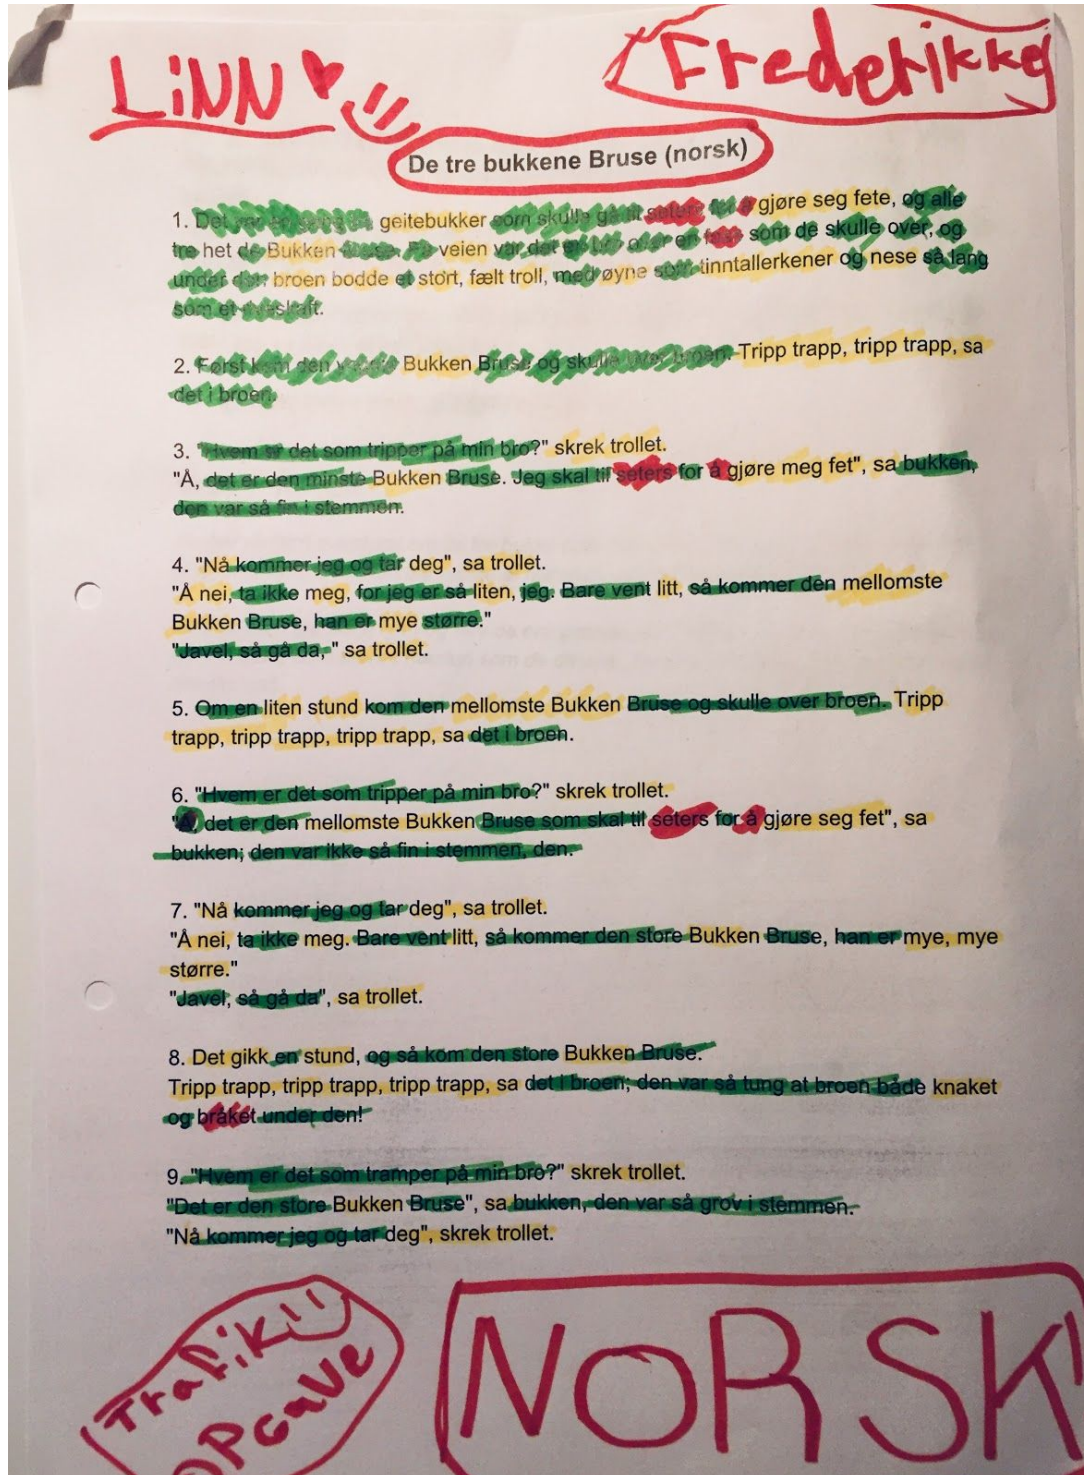 LiNN
Frederikke
De tre bukkene Bruse (norsk)
1. Det var geitebukker som skulle gå til seters for å gjøre seg fete, og alle
tre het de Bukken Bruse. På veien var det en bro over en foss som de skulle over, og
under den broen bodde et stort, fælt troll, med øyne som tinntallerkener og nese så lang
som et riveskaft.
2. Først kom den Bukken Bruse og skulle over broen. Tripp trapp, tripp trapp, sa
det i broen.
3. "Hvem er det som tripper på min bro?" skrek trollet.
"Å, det er den minste Bukken Bruse. Jeg skal til seters for å gjøre meg fet", sa bukken,
den var så fin i stemmen.
4. "Nå kommer jeg og tar deg", sa trollet.
"Å nei, ta ikke meg, for jeg er så liten, jeg. Bare vent litt, så kommer den mellomste
Bukken Bruse, han er mye større."
"Javel, så gå da, " sa trollet.
5. Om en liten stund kom den mellomste Bukken Bruse og skulle over broen. Tripp
trapp, tripp trapp, tripp trapp, sa det i broen.
6. "Hvem er det som tripper på min bro?" skrek trollet.
"Å, det er den mellomste Bukken Bruse som skal til seters for å gjøre seg fet", sa
bukken; den var ikke så fin i stemmen, den.
7. "Nå kommer jeg og tar deg", sa trollet.
"Å nei, ta ikke meg. Bare vent litt, så kommer den store Bukken Bruse, han er mye, mye
større."
"Javel, så gå da", sa trollet.
8. Det gikk en stund, og så kom den store Bukken Bruse.
Tripp trapp, tripp trapp, tripp trapp, sa det i broen; den var så tung at broen både knaket
og bråket under den!
9. "Hvem er det som tramper på min bro?" skrek trollet.
"Det er den store Bukken Bruse", sa bukken, den var så grov i stemmen.
"Nå kommer jeg og tar deg", skrek trollet.
Trafik
OPGaVe
NORSK